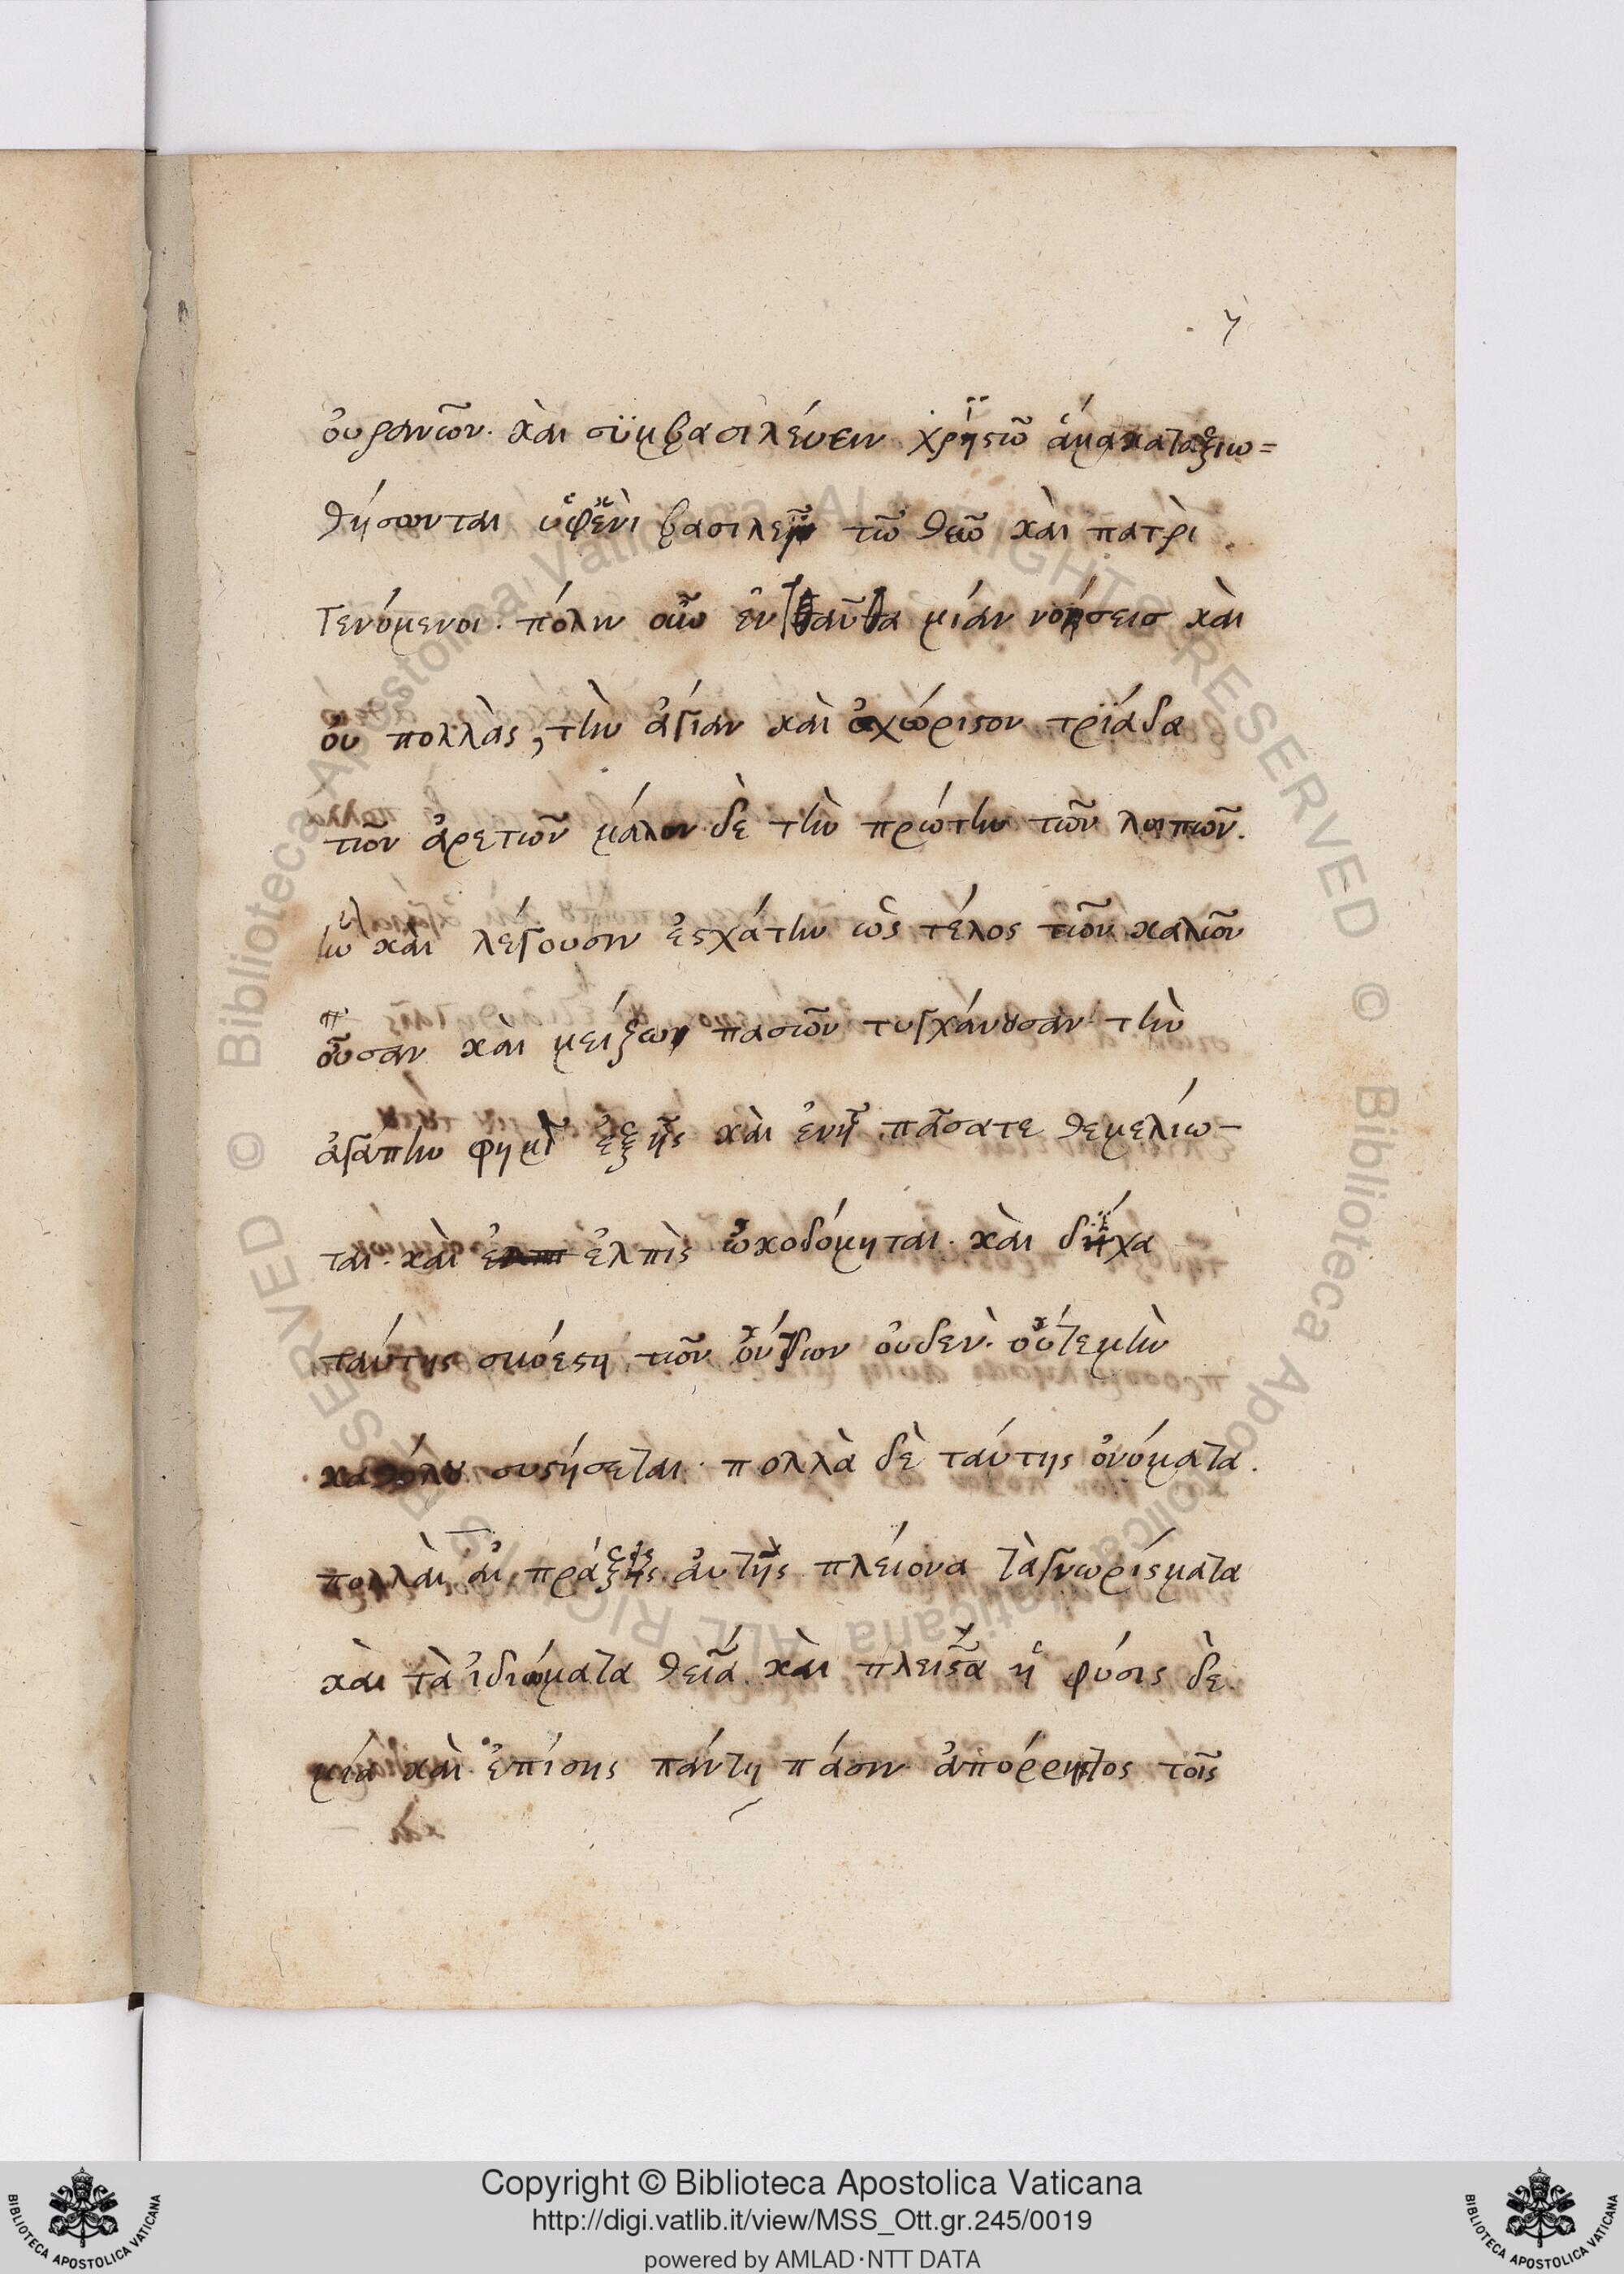 7
ὀυρανῶν. καὶ σϋμβασιλέυειν χρηϊστῶ ἅμα καταξιω=
θήσονται ὑφ' ἑνὶ βασιλεῖ τῶ θεῶ καὶ πατρὶ
γενόμενοι. πόλιν οὖν ἐνταῦθα μίαν νοήσεισ καὶ
ὀυ πολλὰς, τὴν ἁγίαν καὶ ἀχώριστον τρϊάδα
τῶν ἀρετῶν μάλον δὲ τὴν πρώτην τῶν λοιπῶν.
ἣν καὶ λέγουσιν ἐσχάτην ὡς τέλος τῶν καλῶν
οὖσαν καὶ μείζων πασῶν τυγχάνουσαν τὴν
ἀγάπην φημὶ ἐξ ἧς καὶ ἐν ἧ πᾶσα τε θεμελίω-
ται. καὶ ἐλπὶς ὠκοδόμηται. καὶ δίχα
ταύτης συνέστη τῶν ὄντων ὀυδεν. οὔτε μὴν
καθόλου συστήσεται. πολλὰ δὲ ταύτης ὀνόματα.
πολλαι ἁι πράξεις ἀυτῆς πλείονα τὰ γνωρίσματα
καὶ τὰ ἰδιώματα θεῖα καὶ πλεῖστα ἡ φύσις δὲ
μία καὶ ἐπίσης πάντη πάσιν ἀπόρρητος τοῖς
Copyright © Biblioteca Apostolica Vaticana
http://digi.vatlib.it/view/MSS_Ott.gr.245/0019
powered by AMLAD·NTT DATA
BIBLIOTECA APOSTOLICA VATICANA
BIBLIOTECA APOSTOLICA VATICANA
© Biblioteca Apostolica Vaticana ALL RIGHTS RESERVED © Biblioteca Apostolica Vaticana ALL RIGHTS RESERVED